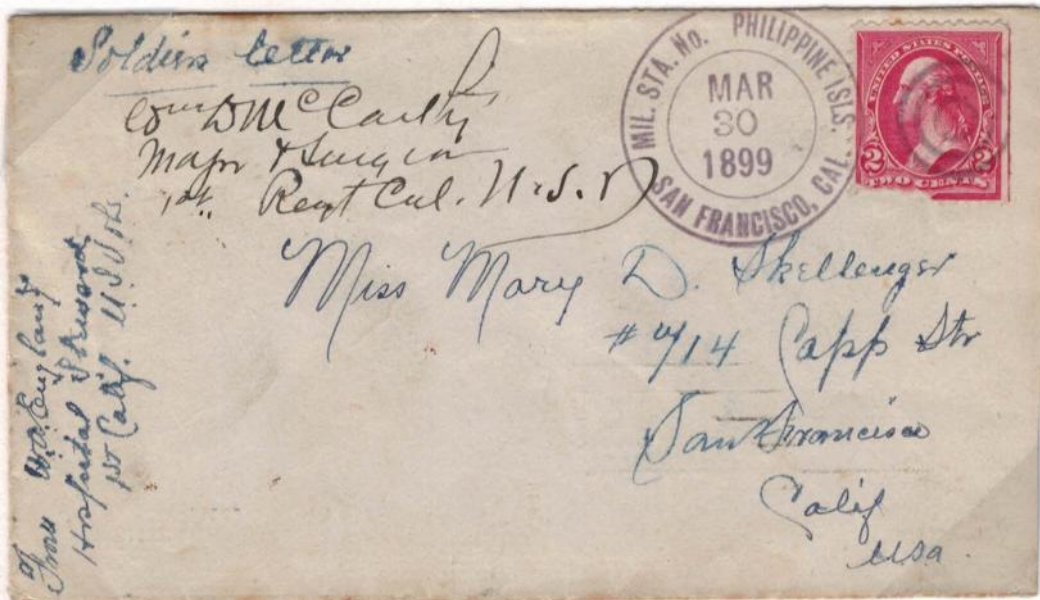 Soldiers letter
Wm D McCarthy
Major & Surgeon
1st. Regt Cal. U.S.V
MIL. STA. No. PHILIPPINE ISLS.
MAR
30
1899
SAN FRANCISCO, CAL.
UNITED STATES POSTAGE
2 2
TWO CENTS
Miss Mary D. Skellenger
#714 Capp Str
San Francisco
Calif
USA.
From W.A. England
Hospital Steward
1st Calif. U.S. Vols.